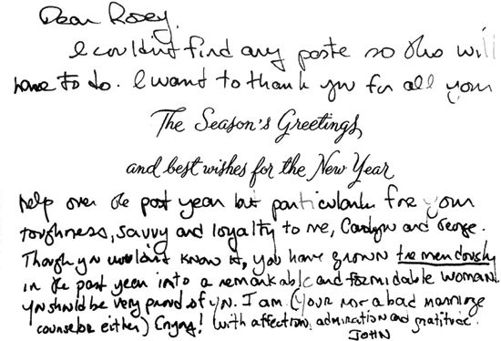 Dear Rosey,
I couldn't find any paste so this will
have to do. I want to thank you for all your
The Season's Greetings,
and best wishes for the New Year
help over the past year but particularly for your
toughness, savvy and loyalty to me, Carolyn and George.
Though you wouldn't know it, you have grown tremendously
in the past year into a remarkable and formidable woman.
You should be very proud of yn. I am (your not a bad marriage
counselor either) Enjoy! With affection, admiration and gratitude.
JOHN